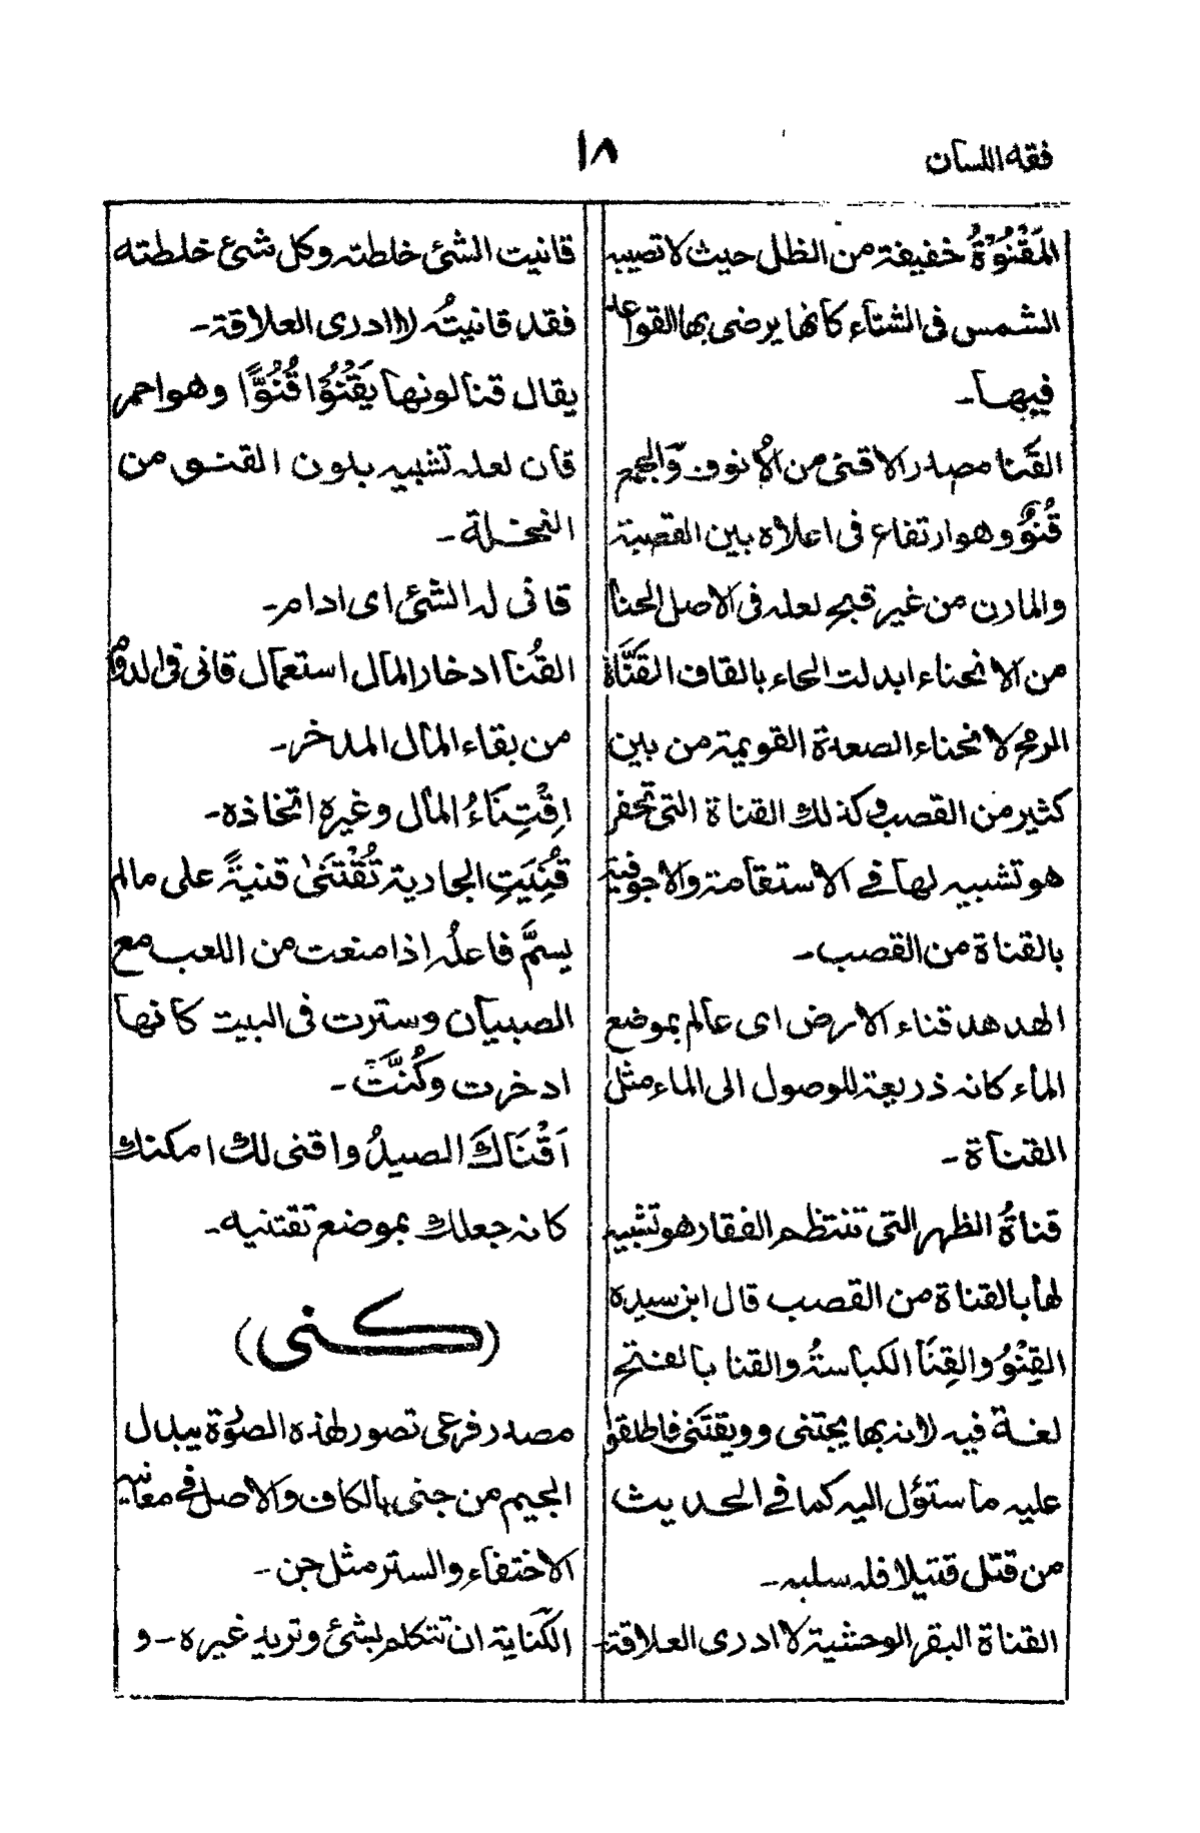 فقه اللسان
١٨
المَقْنُوَةُ خفيفة من الظل حيث لا تصيبه
الشمس فى الشتاء كانها يرضى بها القواعد
فيها۔
القَنا مصدر الاقنى من الأنوف والجمع
قُنوٌ وهو ارتفاع فى اعلاه بين القصبة
والمارن من غير قبح لعله فى الاصل الحنا
من الانحناء ابدلت الحاء بالقاف القَنَّاة
الرمح لانحناء الصعدة القويمة من بين
كثير من القصب وكذلك القناة التى تحفر
هو تشبيه لها فى الاستقامة والاجوفية
بالقناة من القصب۔
الهدهد قناء الارض اى عالم بموضع
الماء كانه ذريعة للوصول الى الماء مثل
القناة۔
قناةُ الظهر التى تنتظم الفقار هو تشبيه
لها بالقناة من القصب قال ابن سيده
القِنْوُ والقِنَا الكباسةُ والقنا بالفتح
لغة فيه لانه بها يجتنى وويقتَنى فاطلقوا
عليه ما ستؤل اليه كما فى الحديث
من قتل قتيلا فله سلبه۔
القناة البقر الوحشية لا ادرى العلاقة۔
قانيت الشئ خلطته وكل شئ خلطته
فقد قانيتُه لا ادرى العلاقة۔
يقال قنا لونها يَقْنُوْا قُنُوًّا وهو احمر
قان لعله تشبيه بلون القنو من
النخلة۔
قانى له الشئ اى ادام۔
القُنا ادخار المال استعمال قانى فى الدوم
من بقاء المال المدخر۔
اِقْتِنَاءُ المال وغيره اتخاذه۔
قُنِيَتِ الجارية تُقْتَنىٰ قنيةً على مالم
يسمَّ فاعلُه اذا منعت من اللعب مع
الصبيان وسترت فى البيت كانها
ادخرت وكُنَّتَ۔
اَقْنَاكَ الصيدُ واقنى لك امكنك
كانه جعلك بموضع تقتنيه۔
(كنى)
مصدر فرعى تصور لهذه الصوُرة يبدال
الجيم من جنى بالكاف والاصل فى معانيه
الاختفاء والستر مثل جن۔
الكناية ان تتكلم بشئ وتريد غيره۔ و